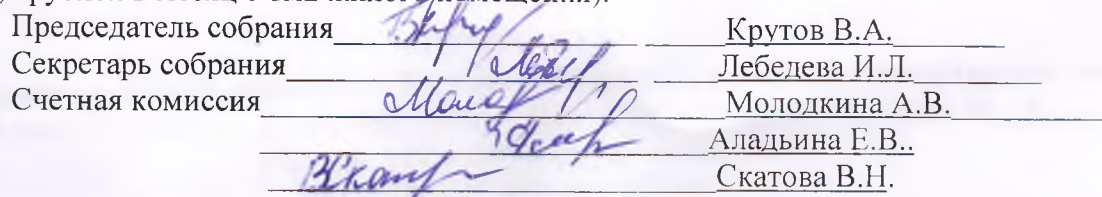 рублей в месяц с
Председатель собрания Крутов В.А.
Секретарь собрания Лебедева И.Л.
Счетная комиссия Молодкина А.В.
Аладьина Е.В..
Скатова В.Н.